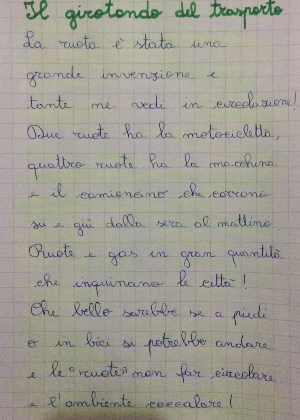 Il girotondo del trasporto
La ruota è stata una
grande invenzione e
tante me vedi in circolazione!
Due ruote ha la motocicletta,
quattro ruote ha la macchina
e il camioncino che corrono
su e giù dalla sera al mattino.
Ruote e gas in gran quantità
che inquinano le città!
Che bello sarebbe se a piedi
o in bici su potrebbe andare
e le "ruote" non far circolare
e l'ambiente coccolare!